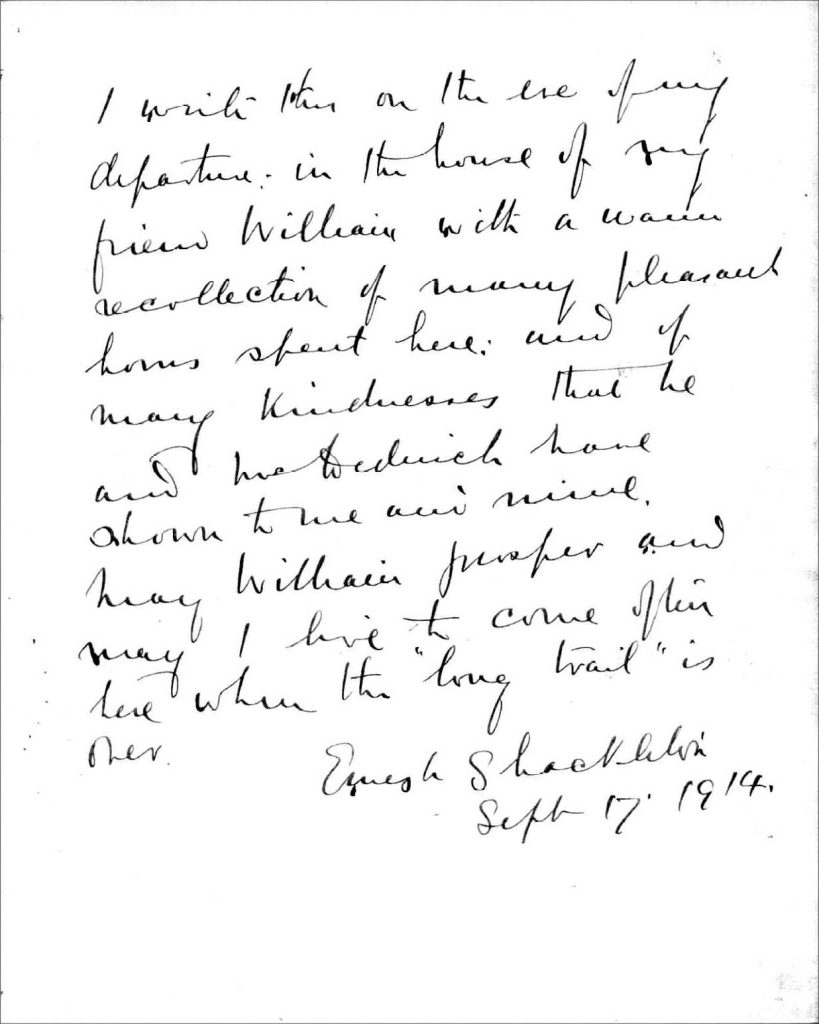 I write this on the eve of my
departure. in the house of my
friend William with a warm
recollection of many pleasant
hours spent here: and of
many kindnesses that he
and have
shown to me and mine.
May William prosper and
may I live to come often
here when the "long trail" is
over.
Ernest Shackleton
Sept 17. 1914.